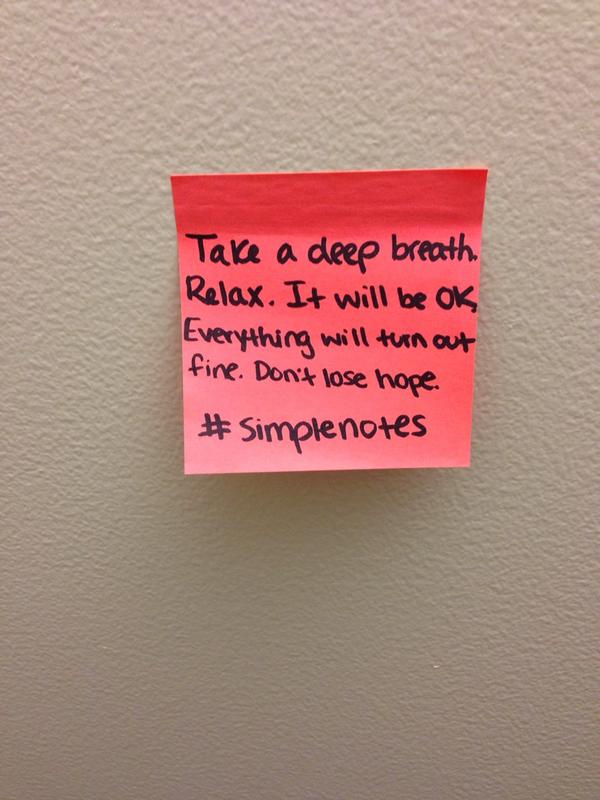 Take a deep breath.
Relax. It will be OK.
Everything will turn out
fine. Don't lose hope.
#simplenotes